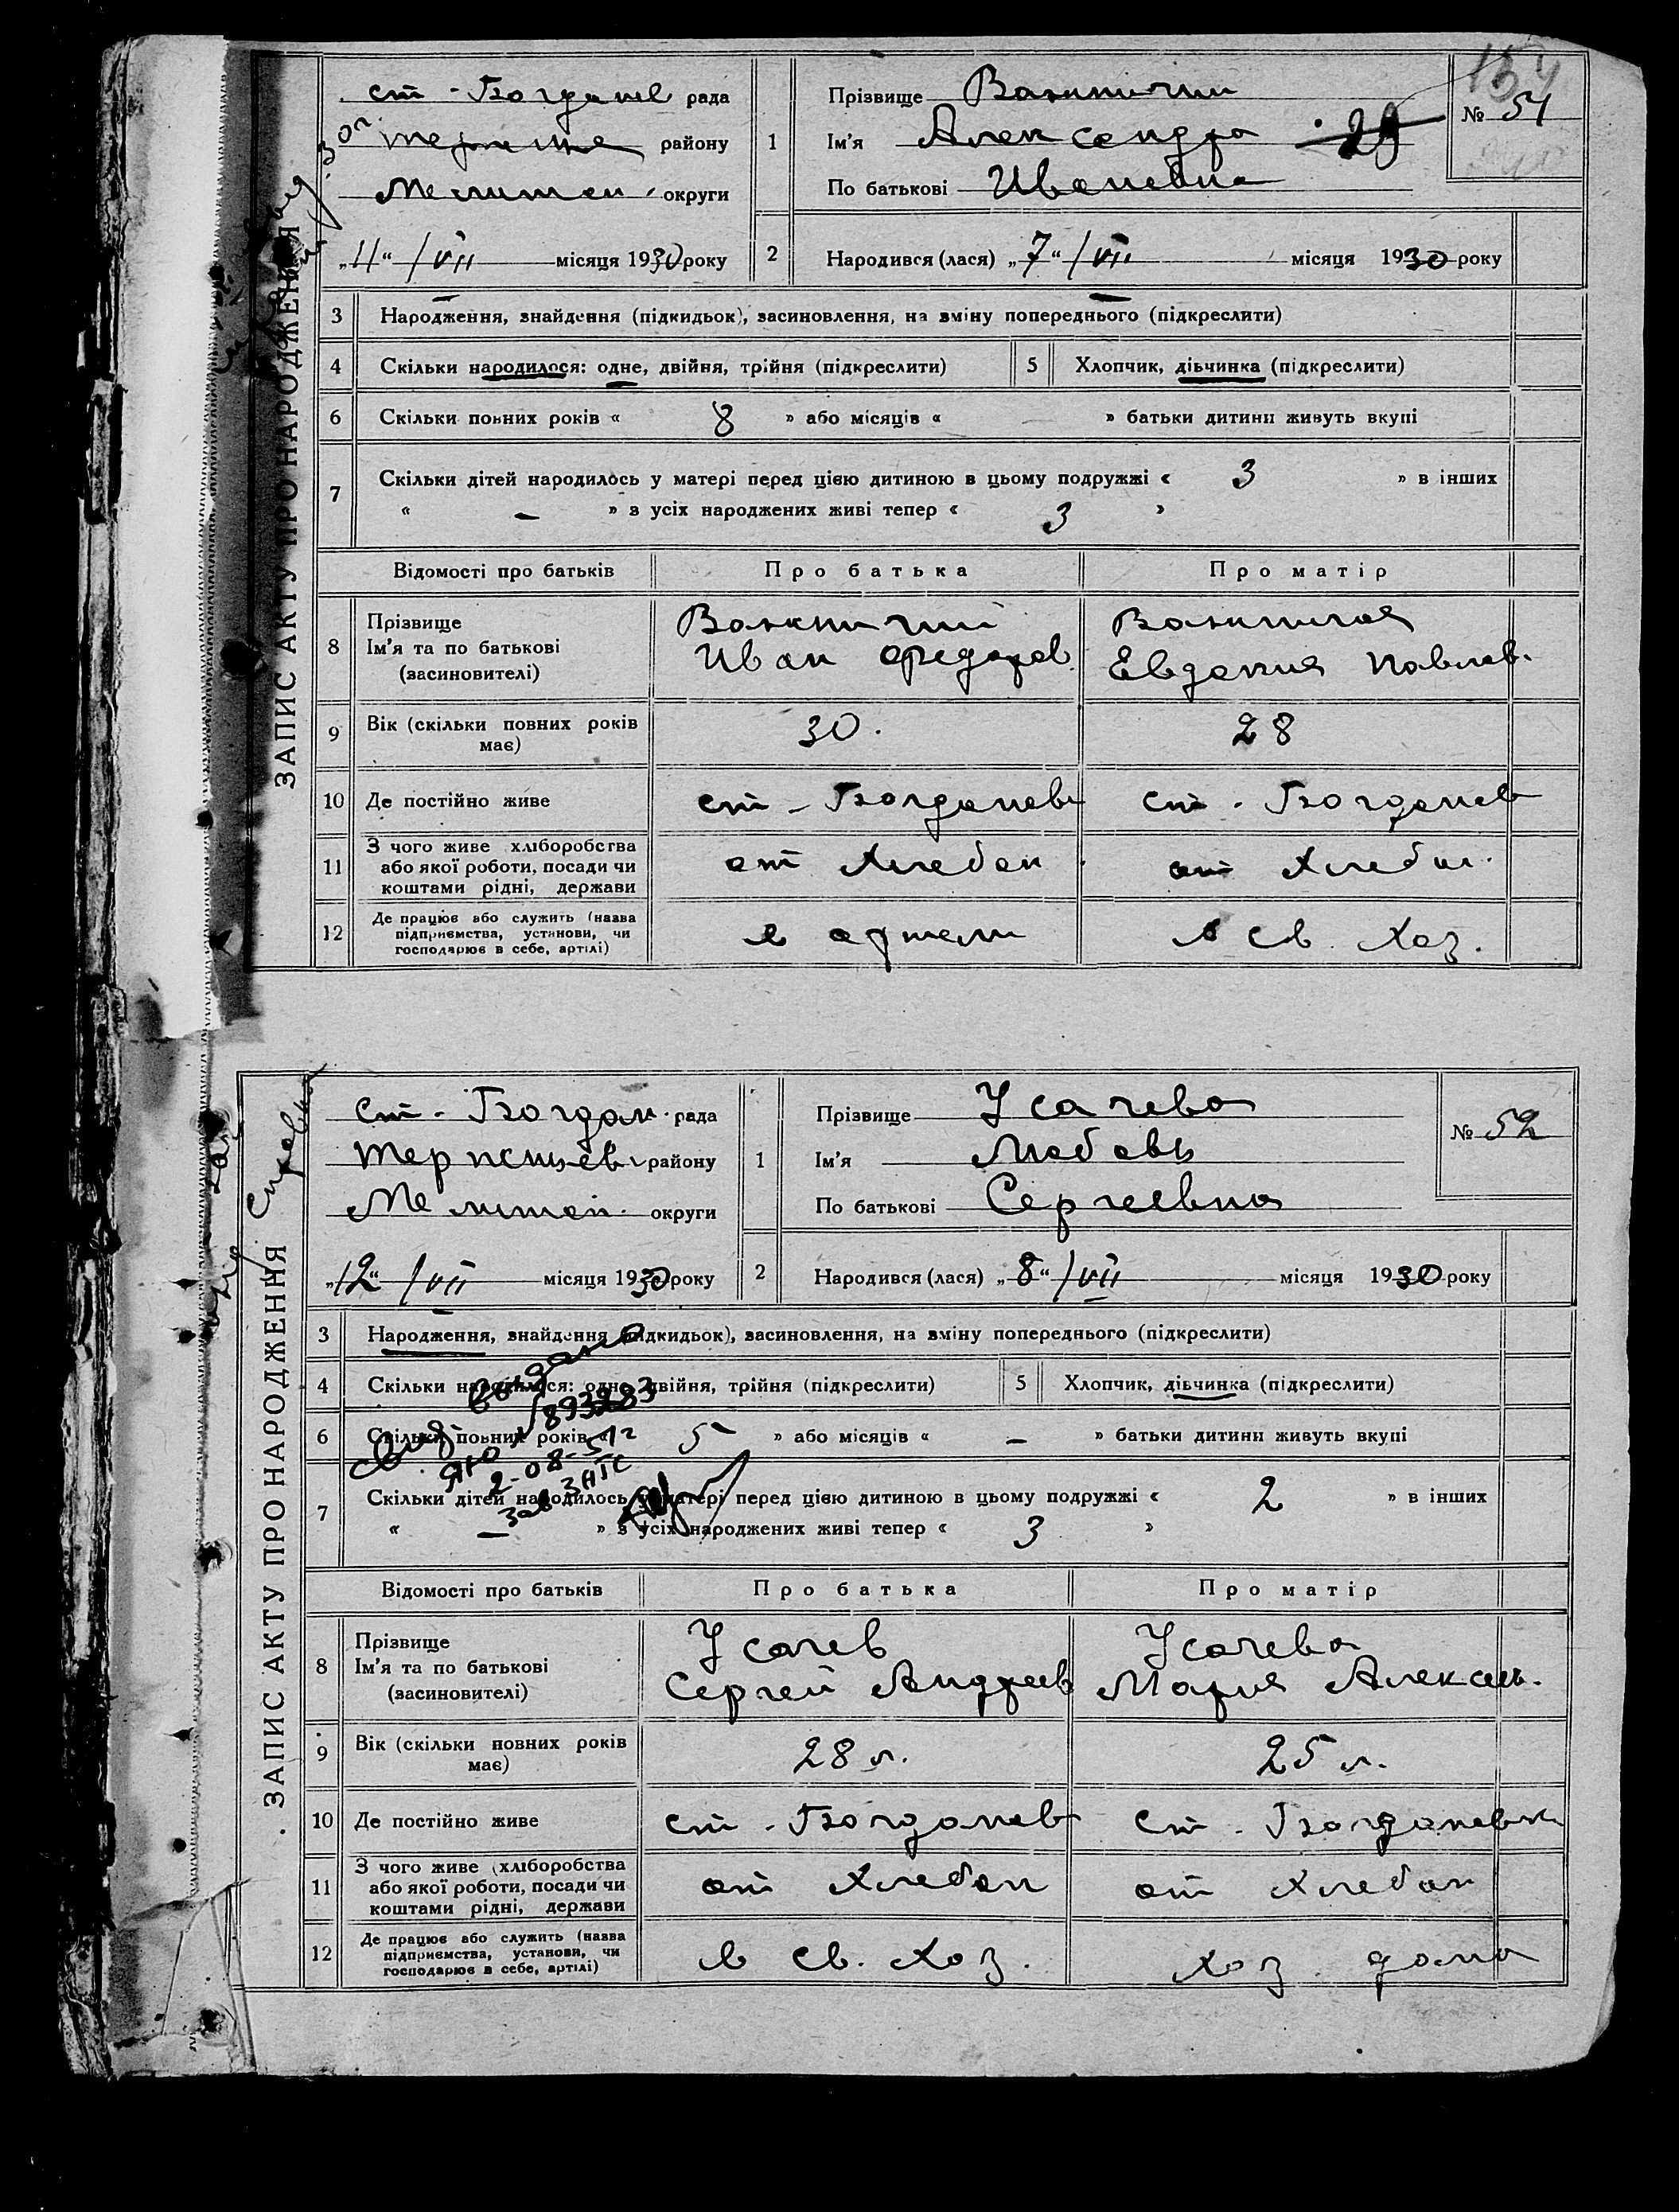 154
ЗАПИС АКТУ ПРО НАРОДЖЕННЯ
ст - Богданев рада
району
Мелитоп. округи
„11“ /VII місяця 1930 року
1
Прізвище
Ім'я Александра
29
По батькові Ивановна
№ 51
2
Народився (лася) „7“ /VII місяця 1930 року
3 Народження, знайдення (підкидьок), засиновлення, на зміну попереднього (підкреслити)
4 Скільки народилося: одне, двійня, трійня (підкреслити) 5 Хлопчик, дівчинка (підкреслити)
6 Скільки повних років « 8 » або місяців « » батьки дитини живуть вкупі
7 Скільки дітей народилось у матері перед цією дитиною в цьому подружжі « 3 » в інших
« – » з усіх народжених живі тепер « 3 »
Відомості про батьків Про батька Про матір
8 Прізвище
Ім'я та по батькові
(засиновителі)
Иван Федоров.
Евдокия Павлов.
9 Вік (скільки повних років має) 30. 28
10 Де постійно живе ст - Богдановк ст - Богданов
11 З чого живе хліборобства або якої роботи, посади чи коштами рідні, держави от хлебоп от хлебоп.
12 Де працює або служить (назва підприємства, установи, чи господарює в себе, артілі) в артели в св. хоз.
ЗАПИС АКТУ ПРО НАРОДЖЕННЯ
Справка
ст - Богдан. рада
Терпеньев району
Мелитоп. округи
„12“ /VII місяця 1930 року
1
Прізвище Усачева
Ім'я Любовь
По батькові Сергеевна
№ 52
2
Народився (лася) „8“ /VII місяця 1930 року
3 Народження, знайдення (підкидьок), засиновлення, на зміну попереднього (підкреслити)
4 Скільки народилося: одне, двійня, трійня (підкреслити) 5 Хлопчик, дівчинка (підкреслити)
6 Скільки повних років « 5 » або місяців « – » батьки дитини живуть вкупі
7 Скільки дітей народилось у матері перед цією дитиною в цьому подружжі « 2 » в інших
« – » з усіх народжених живі тепер « 3 »
выдано
Свид
2-08-51г
Зав ЗАГС
Відомості про батьків Про батька Про матір
8 Прізвище
Ім'я та по батькові
(засиновителі)
Усачев
Сергей Андреев
Усачева
Мария Алексеев.
9 Вік (скільки повних років має) 28 л. 25 л.
10 Де постійно живе ст - Богданов ст - Богдановк
11 З чого живе (хліборобства або якої роботи, посади чи коштами рідні, держави от хлебоп от хлебоп
12 Де працює або служить (назва підприємства, установи, чи господарює в себе, артілі) в св. хоз. хоз. дома